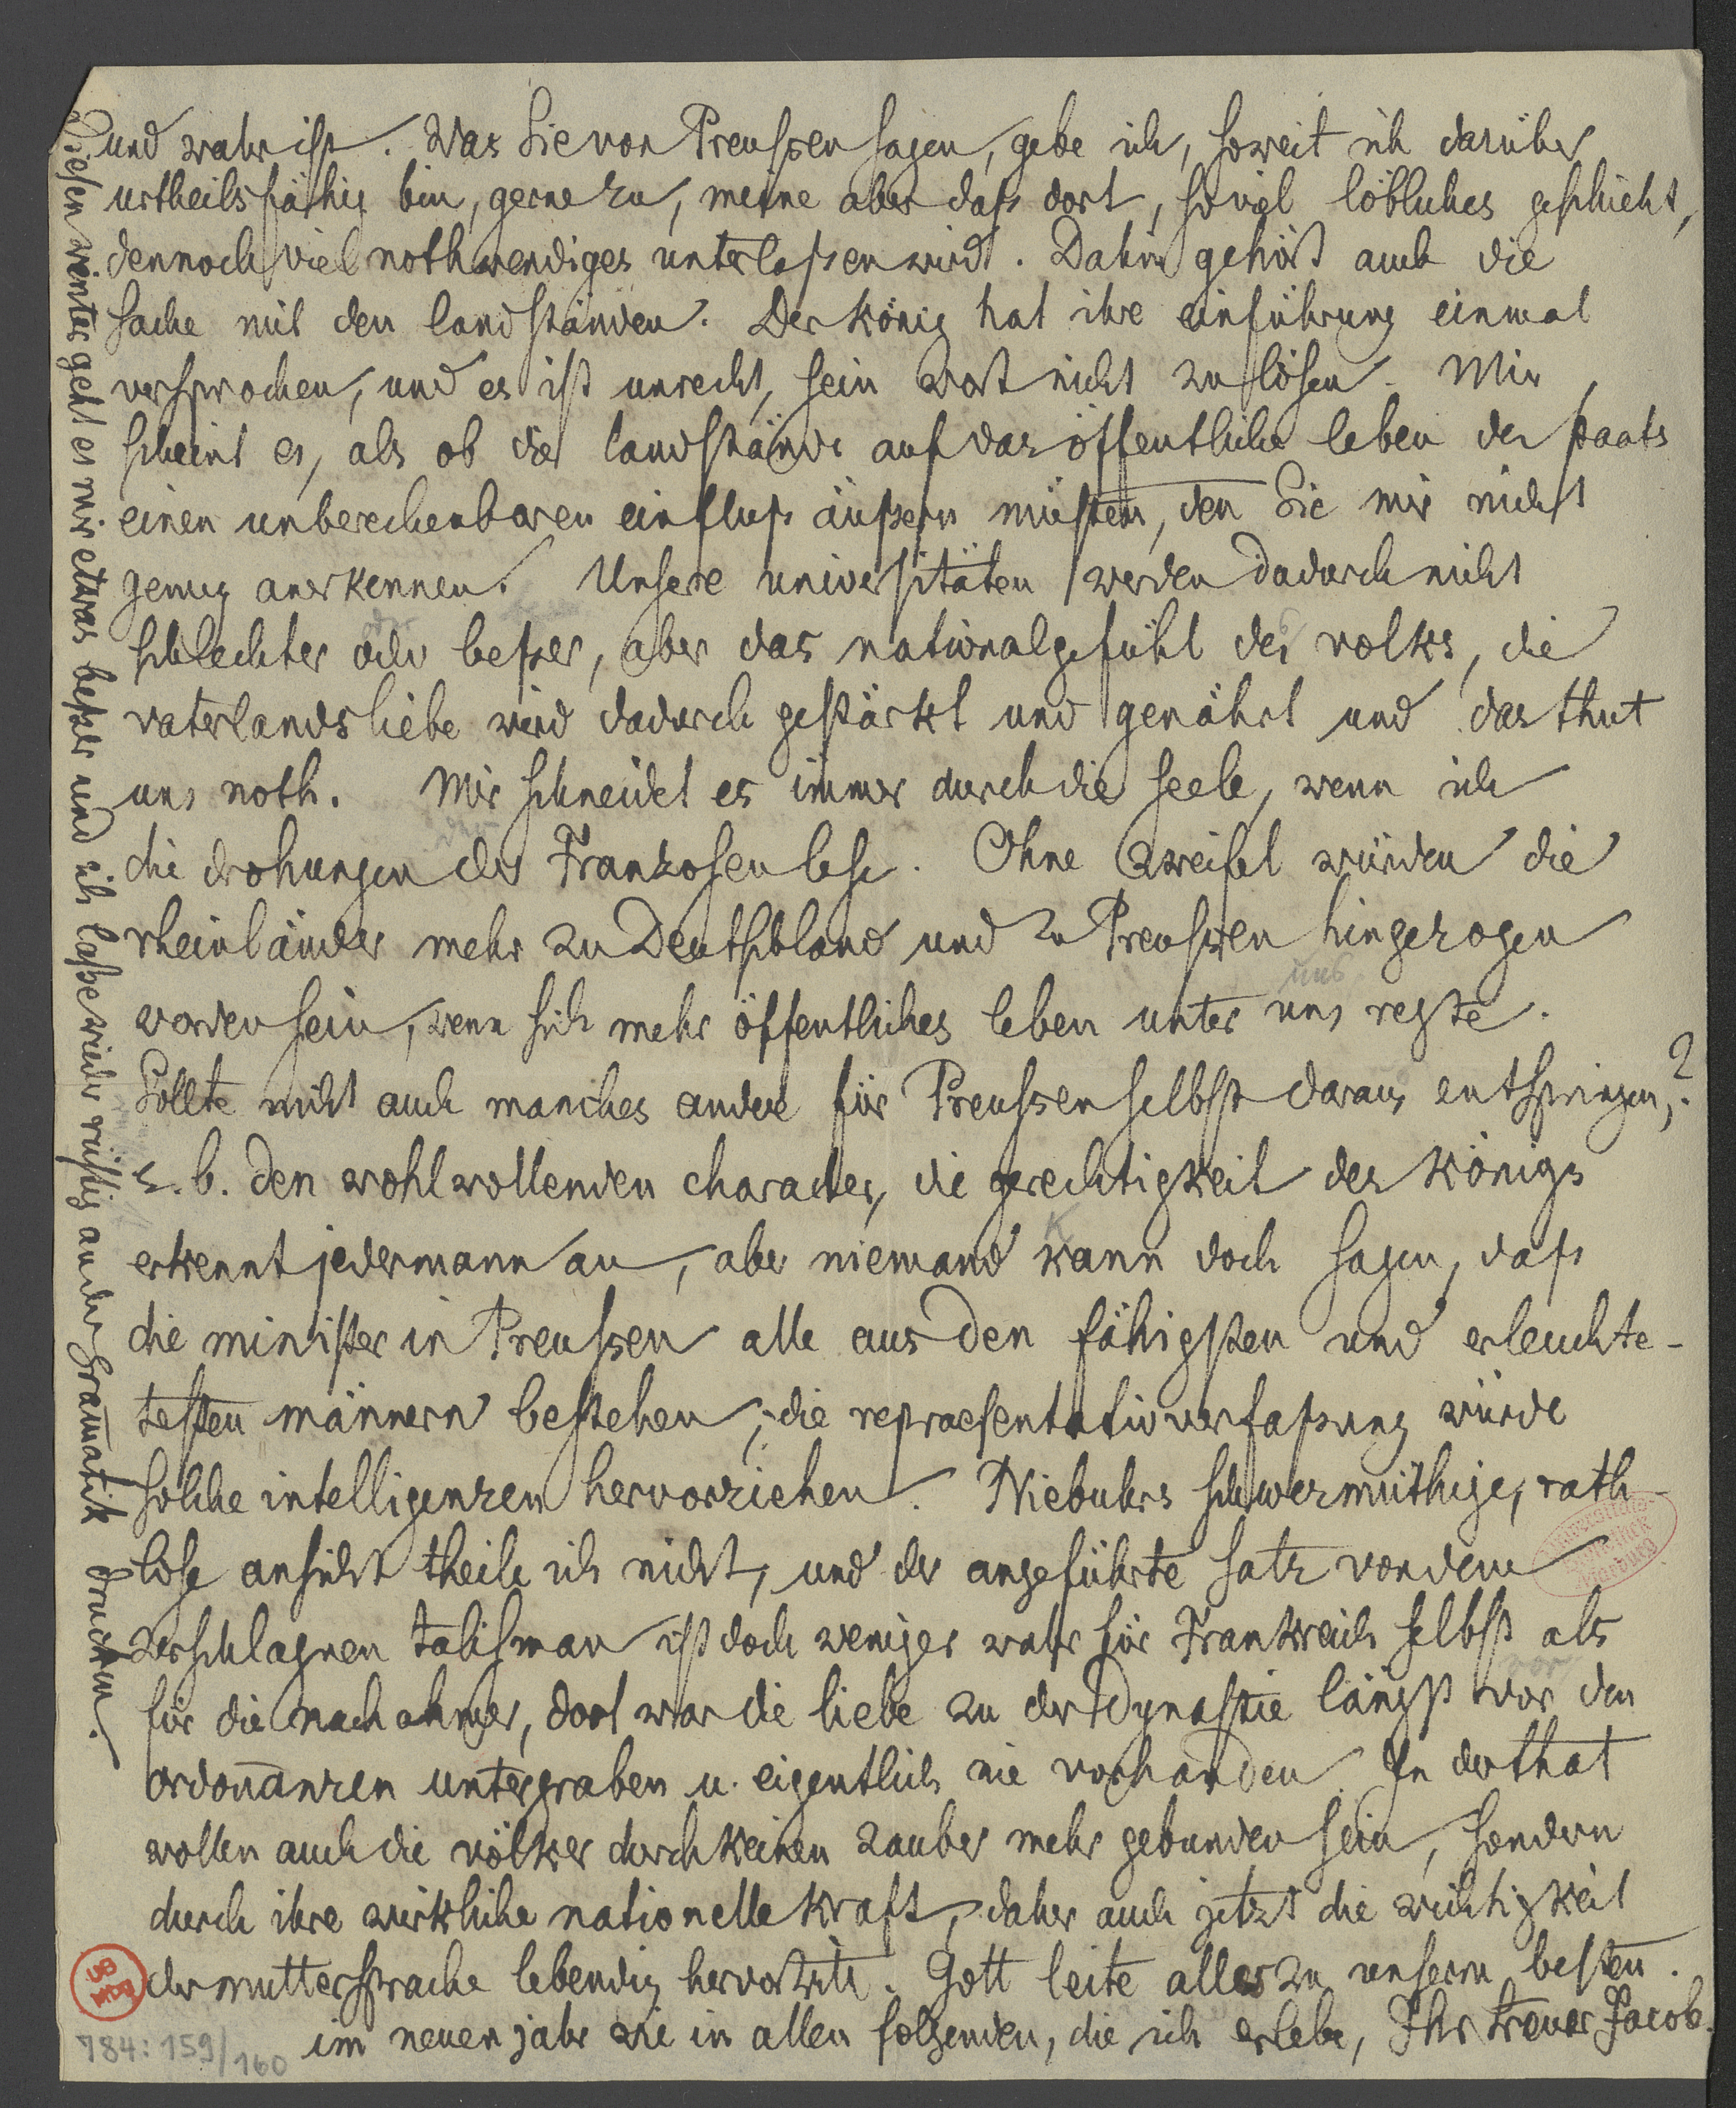 und wahr ist. Was Sie von Preussen sagen, gebe ich, soweit ich darüber
urtheilsfähig bin, gerne zu, meine aber daß dort, so viel löbliches geschieht,
dennoch viel nothwendiges unterlaßen wird. Dahin gehört auch die
sache mit den landständen. Der König hat ihre einführung einmal
versprochen, und es ist unrecht, sein wort nicht zu lösen. Mir
scheint es, als ob die landstände auf das öffentliche leben des staats
einen unberechenbaren einfluß äußern müsten, den Sie mir nicht
genug anerkennen. Unsere universitäten werden dadurch nicht
schlechter oder beßer, aber das nationalgefühl des volks, die
vaterlandsliebe wird dadurch gestärkt und genährt und das thut
uns noth. Mir schneidet es immer durch die seele, wenn ich
die drohungen der Franzosen lese. Ohne zweifel würden die
rheinländer mehr zu Deutschland und zu Preussen hingezogen
worden sein, wenn sich mehr öffentliches leben unter uns regte.
Sollte nicht auch manches andere für Preussen selbst daraus entspringen,?
z. b. den wohlwollenden character, die gerechtigkeit des königs
erkennt jedermann an, aber niemand kann doch sagen, daß
die minister in Preussen alle aus den fähigsten und erleuchte-
testen männern bestehen; die repraesentativverfaßung würde
solche intelligenzen hervorziehen. Niebuhrs schwermüthige, rath-
lose ansicht theile ich nicht, und der angeführte satz von dem
zerschlagnen talisman ist doch weniger wahr für Frankreich selbst als
für die nachahmer, dort war die liebe zu der Dynastie längst vor den
ordonnanzen untergraben u. eigentlich nie vorhanden. In der that
wollen auch die völker durch keinen zauber mehr gebunden sein, sondern
durch ihre wirkliche nationelle kraft, daher auch jetzt die wichtigkeit
der muttersprache lebendig hervortritt. Gott leite alles zu unserm besten.
im neuen jahr wie in allen folgenden, die ich erlebe, Ihr treuer Jacob.
Diesen winter geht es mir etwas beßer und ich laße wieder rüstig an der Grammatik drucken.
784: 159/160